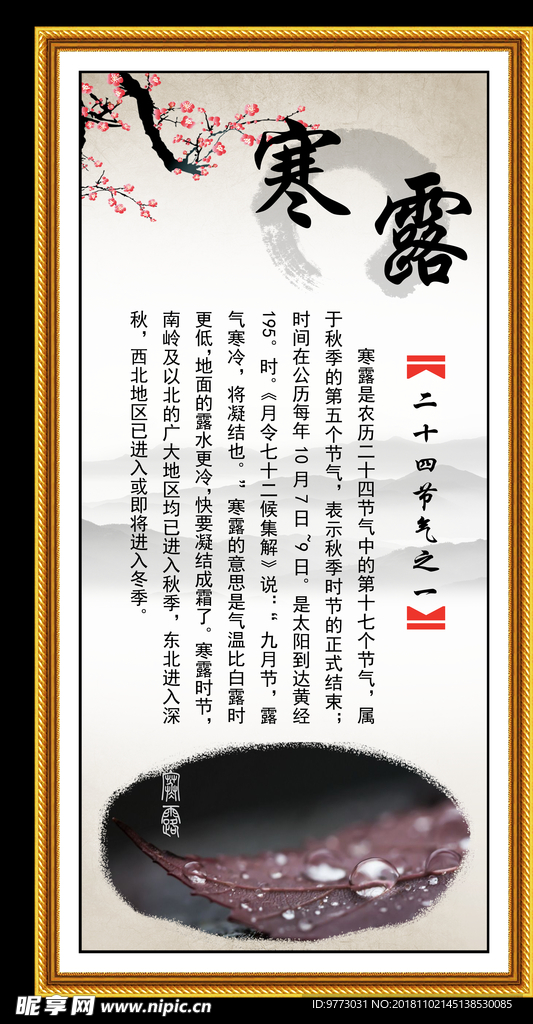 寒露
【二十四节气之一】
寒露是农历二十四节气中的第十七个节气，属
于秋季的第五个节气，表示秋季时节的正式结束；
时间在公历每年10月7日~9日。是太阳到达黄经
195。时。《月令七十二候集解》说：“九月节，露
气寒冷，将凝结也。”寒露的意思是气温比白露时
更低，地面的露水更冷，快要凝结成霜了。寒露时节，
南岭及以北的广大地区均已进入秋季，东北进入深
秋，西北地区已进入或即将进入冬季。
寒露
昵享网 www.nipic.cn
ID:9773031 NO:20181102145138530085